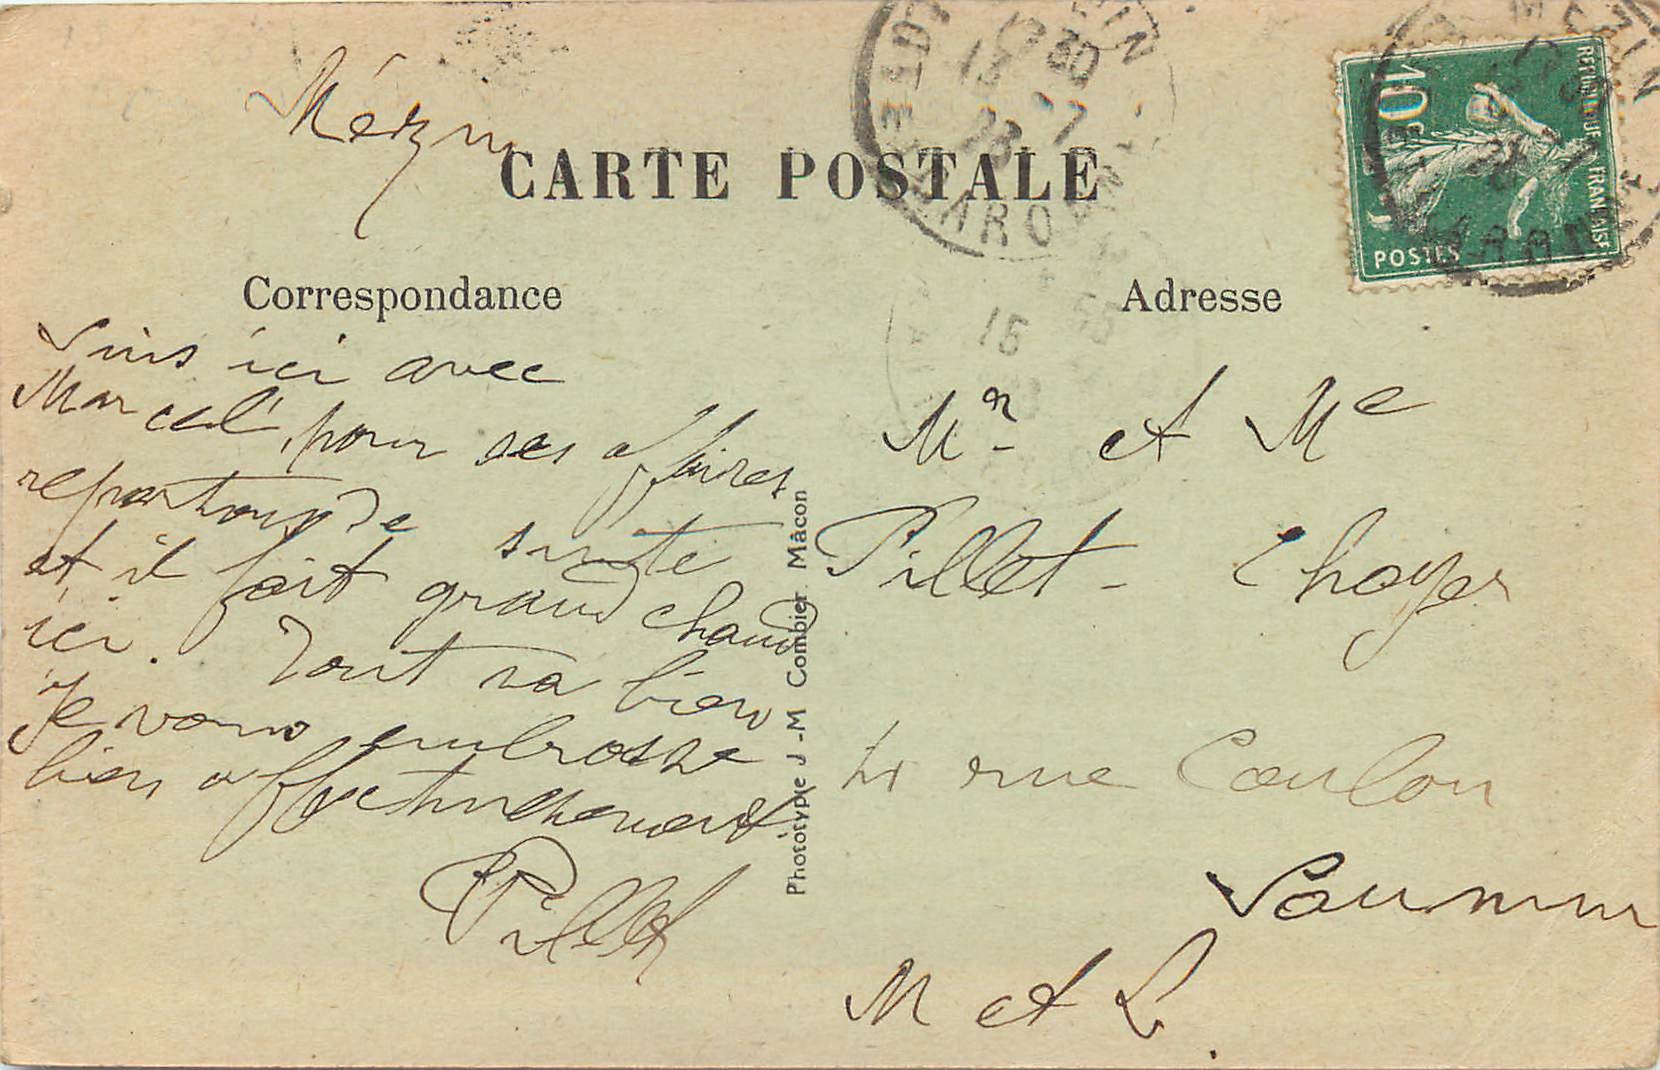 Mézin
CARTE POSTALE
Correspondance
Adresse
Suis ici avec
Marcel pour ses affaires
repartons de suite
et il fait grand chaud
ici. Tout va bien
Je vous embrasse
bien affectueusement
Pillet
Mr et Me
Pillet-
rue Coulon
Saumur
M et L.
Phototypie J-M Combier Mâcon
MEZIN
LOT-ET-GARONNE
17 30
13 -7
23
10c
REPUBLIQUE FRANÇAISE
POSTES
MEZIN